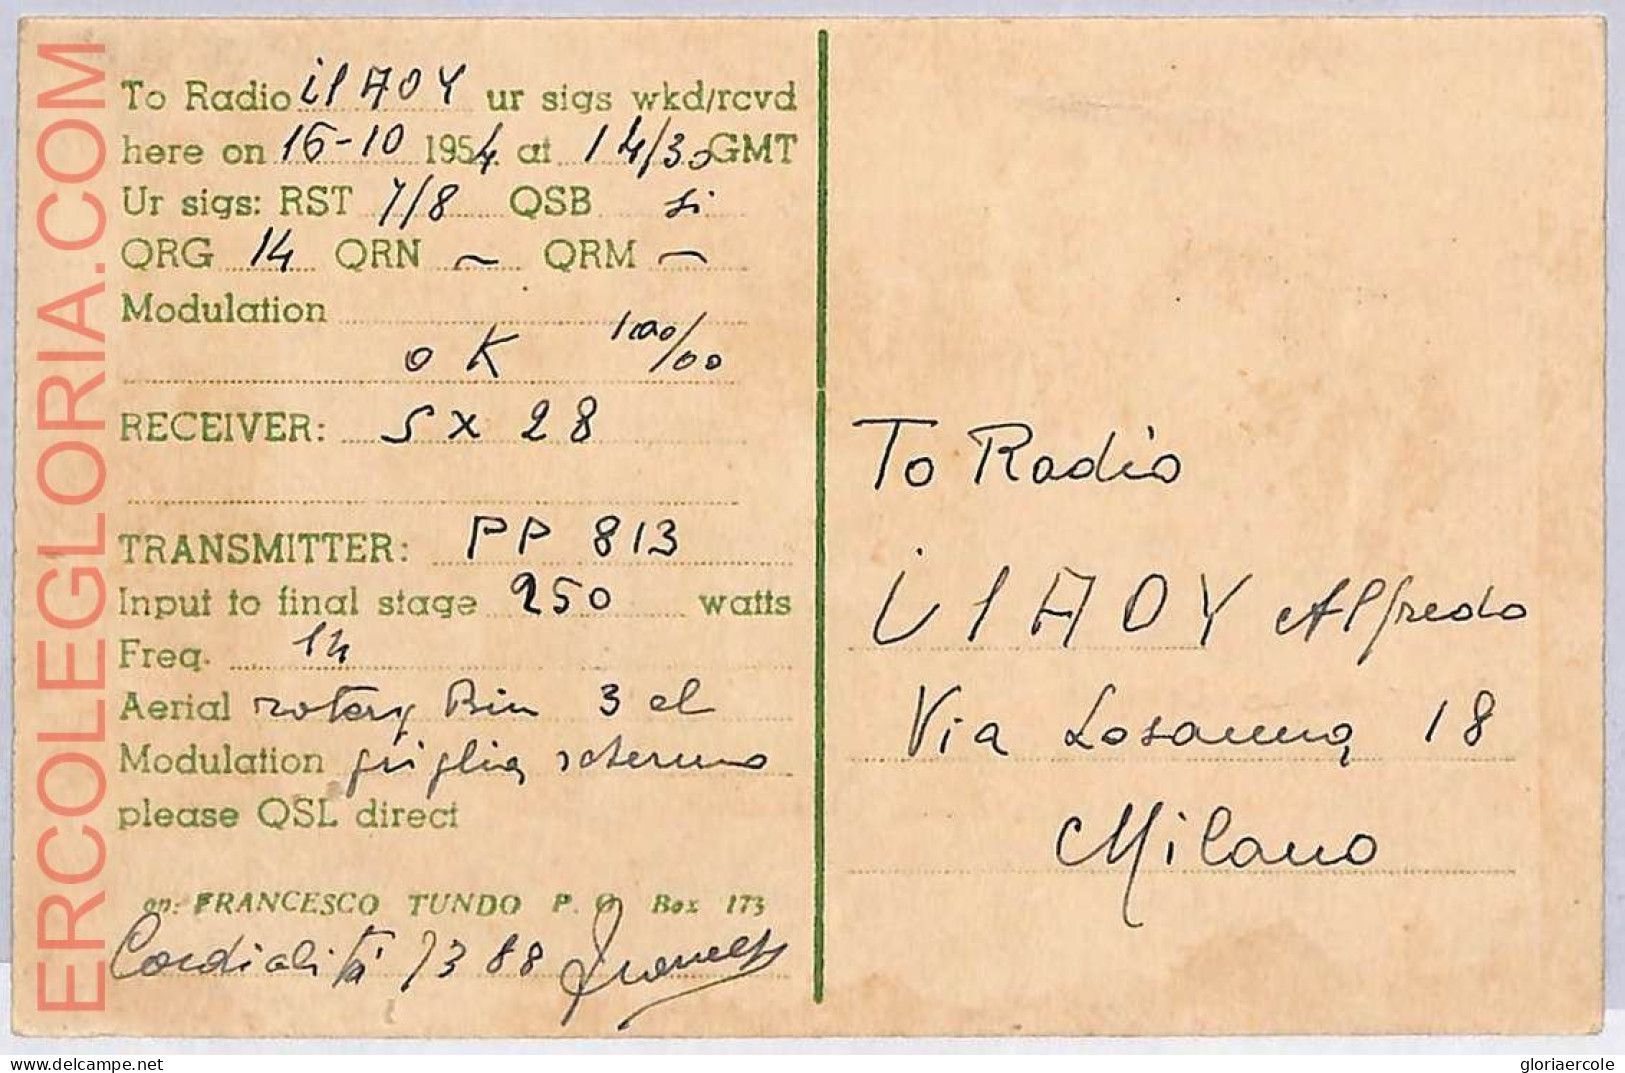 ERCOLEGLORIA.COM
To Radio i1AOY ur sigs wkd/rcvd
here on 16-10 1954 at 14/30 GMT
Ur sigs: RST 7/8 QSB si
QRG 14 QRN ~ QRM ~
Modulation
OK 100/00
RECEIVER: SX 28
TRANSMITTER: PP 813
Input to final stage 250 watts
Freq. 14
Aerial rotary Bim 3 el
Modulation griglia schermo
please QSL direct
op: FRANCESCO TUNDO P. O. Box 173
Cordialità 73 88
To Radio
i1AOY Alfredo
Via Losanna 18
Milano
delcampe.net
gloriaercole